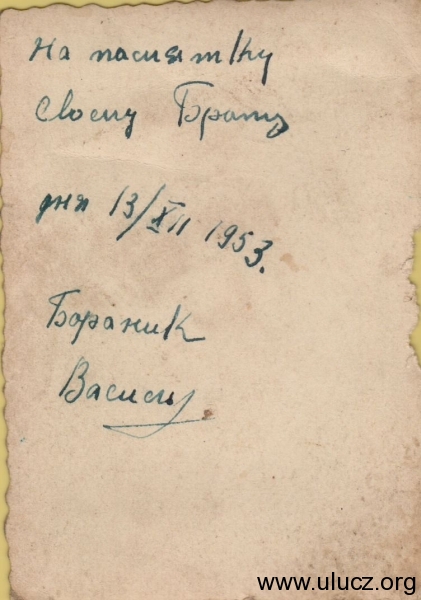 На памятку
Своему Брату
дня 13/XII 1953.
Бораник
Василь
www.ulucz.org